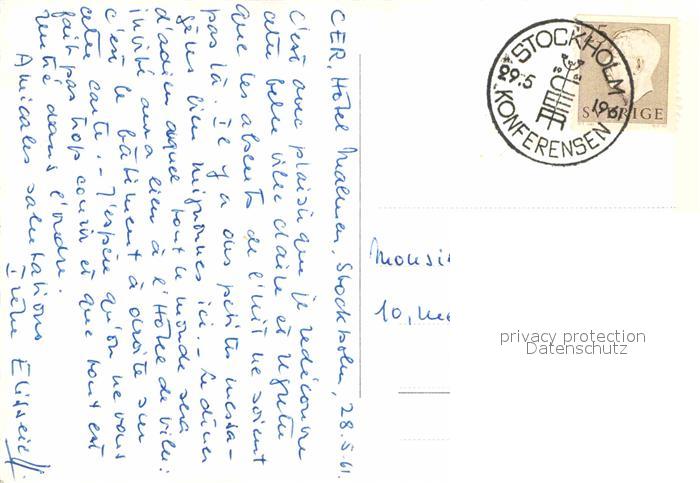 CER, Hôtel Malmen, Stockholm, 28.5.61.
C'est avec plaisir que je redécouvre
cette belle ville claire et regrette
que les absents de l'unité ne soient
pas là. Il y a des petites messa-
gères bien mignonnes ici. - Le dîner
d'adieu auquel tout le monde sera
invité aura lieu à l'Hôtel de ville:
c'est le bâtiment à droite sur
cette carte. - J'espère qu'on ne vous
fait pas trop courir et que tout est
rentré dans l'ordre.
Amicales salutations
Irène
STOCKHOLM
29.5
1961
KONFERENSEN
SVERIGE
Monsi
10,
privacy protection
Datenschutz